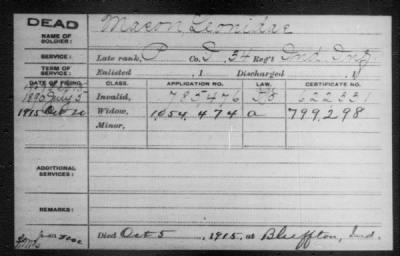 DEAD
Macon, Leonidas
NAME OF
SOLDIER:
SERVICE:
Late rank, P Co. 34 Reg't Ind. Inf.
TERM OF
SERVICE:
Enlisted , 1 Discharged , 1
DATE OF FILING. CLASS. APPLICATION NO. LAW. CERTIFICATE NO.
1890 July 5 Invalid, 785,476 622331
1915 Oct 20 Widow, 1054,474 a 799,298
Minor,
ADDITIONAL
SERVICES:
REMARKS:
Died Oct 5, 1915, at Bluffton, Ind.